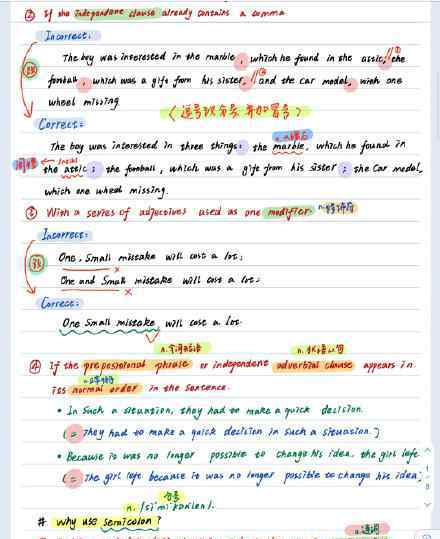 ② If the independent clause already contains a comma
Incorrect:
The boy was interested in the marble, which he found in the attic, the
football, which was a gift from his sister, and the car model, with one
wheel missing
(逗号改分号 并加冒号)
Correct:
The boy was interested in three things: the marble, which he found in
the attic; the football, which was a gift from his sister; the car model,
which one wheel missing.
③ With a series of adjectives used as one modifier. n.修饰符
Incorrect:
One, Small mistake will cost a lot;
One and Small mistake will cost a lot;
Correct:
One Small mistake will cost a lot.
n.介词短语 n.状语从句
④ If the prepositional phrase or independent adverbial clause appears in
its normal order in the sentence.
• In Such a situation, they had to make a quick decision.
(= They had to make a quick decision in such a situation.)
• Because it was no longer possible to change his idea, the girl left
(= The girl left because it was no longer possible to change his idea)
n. 分号
# Why use semicolon?